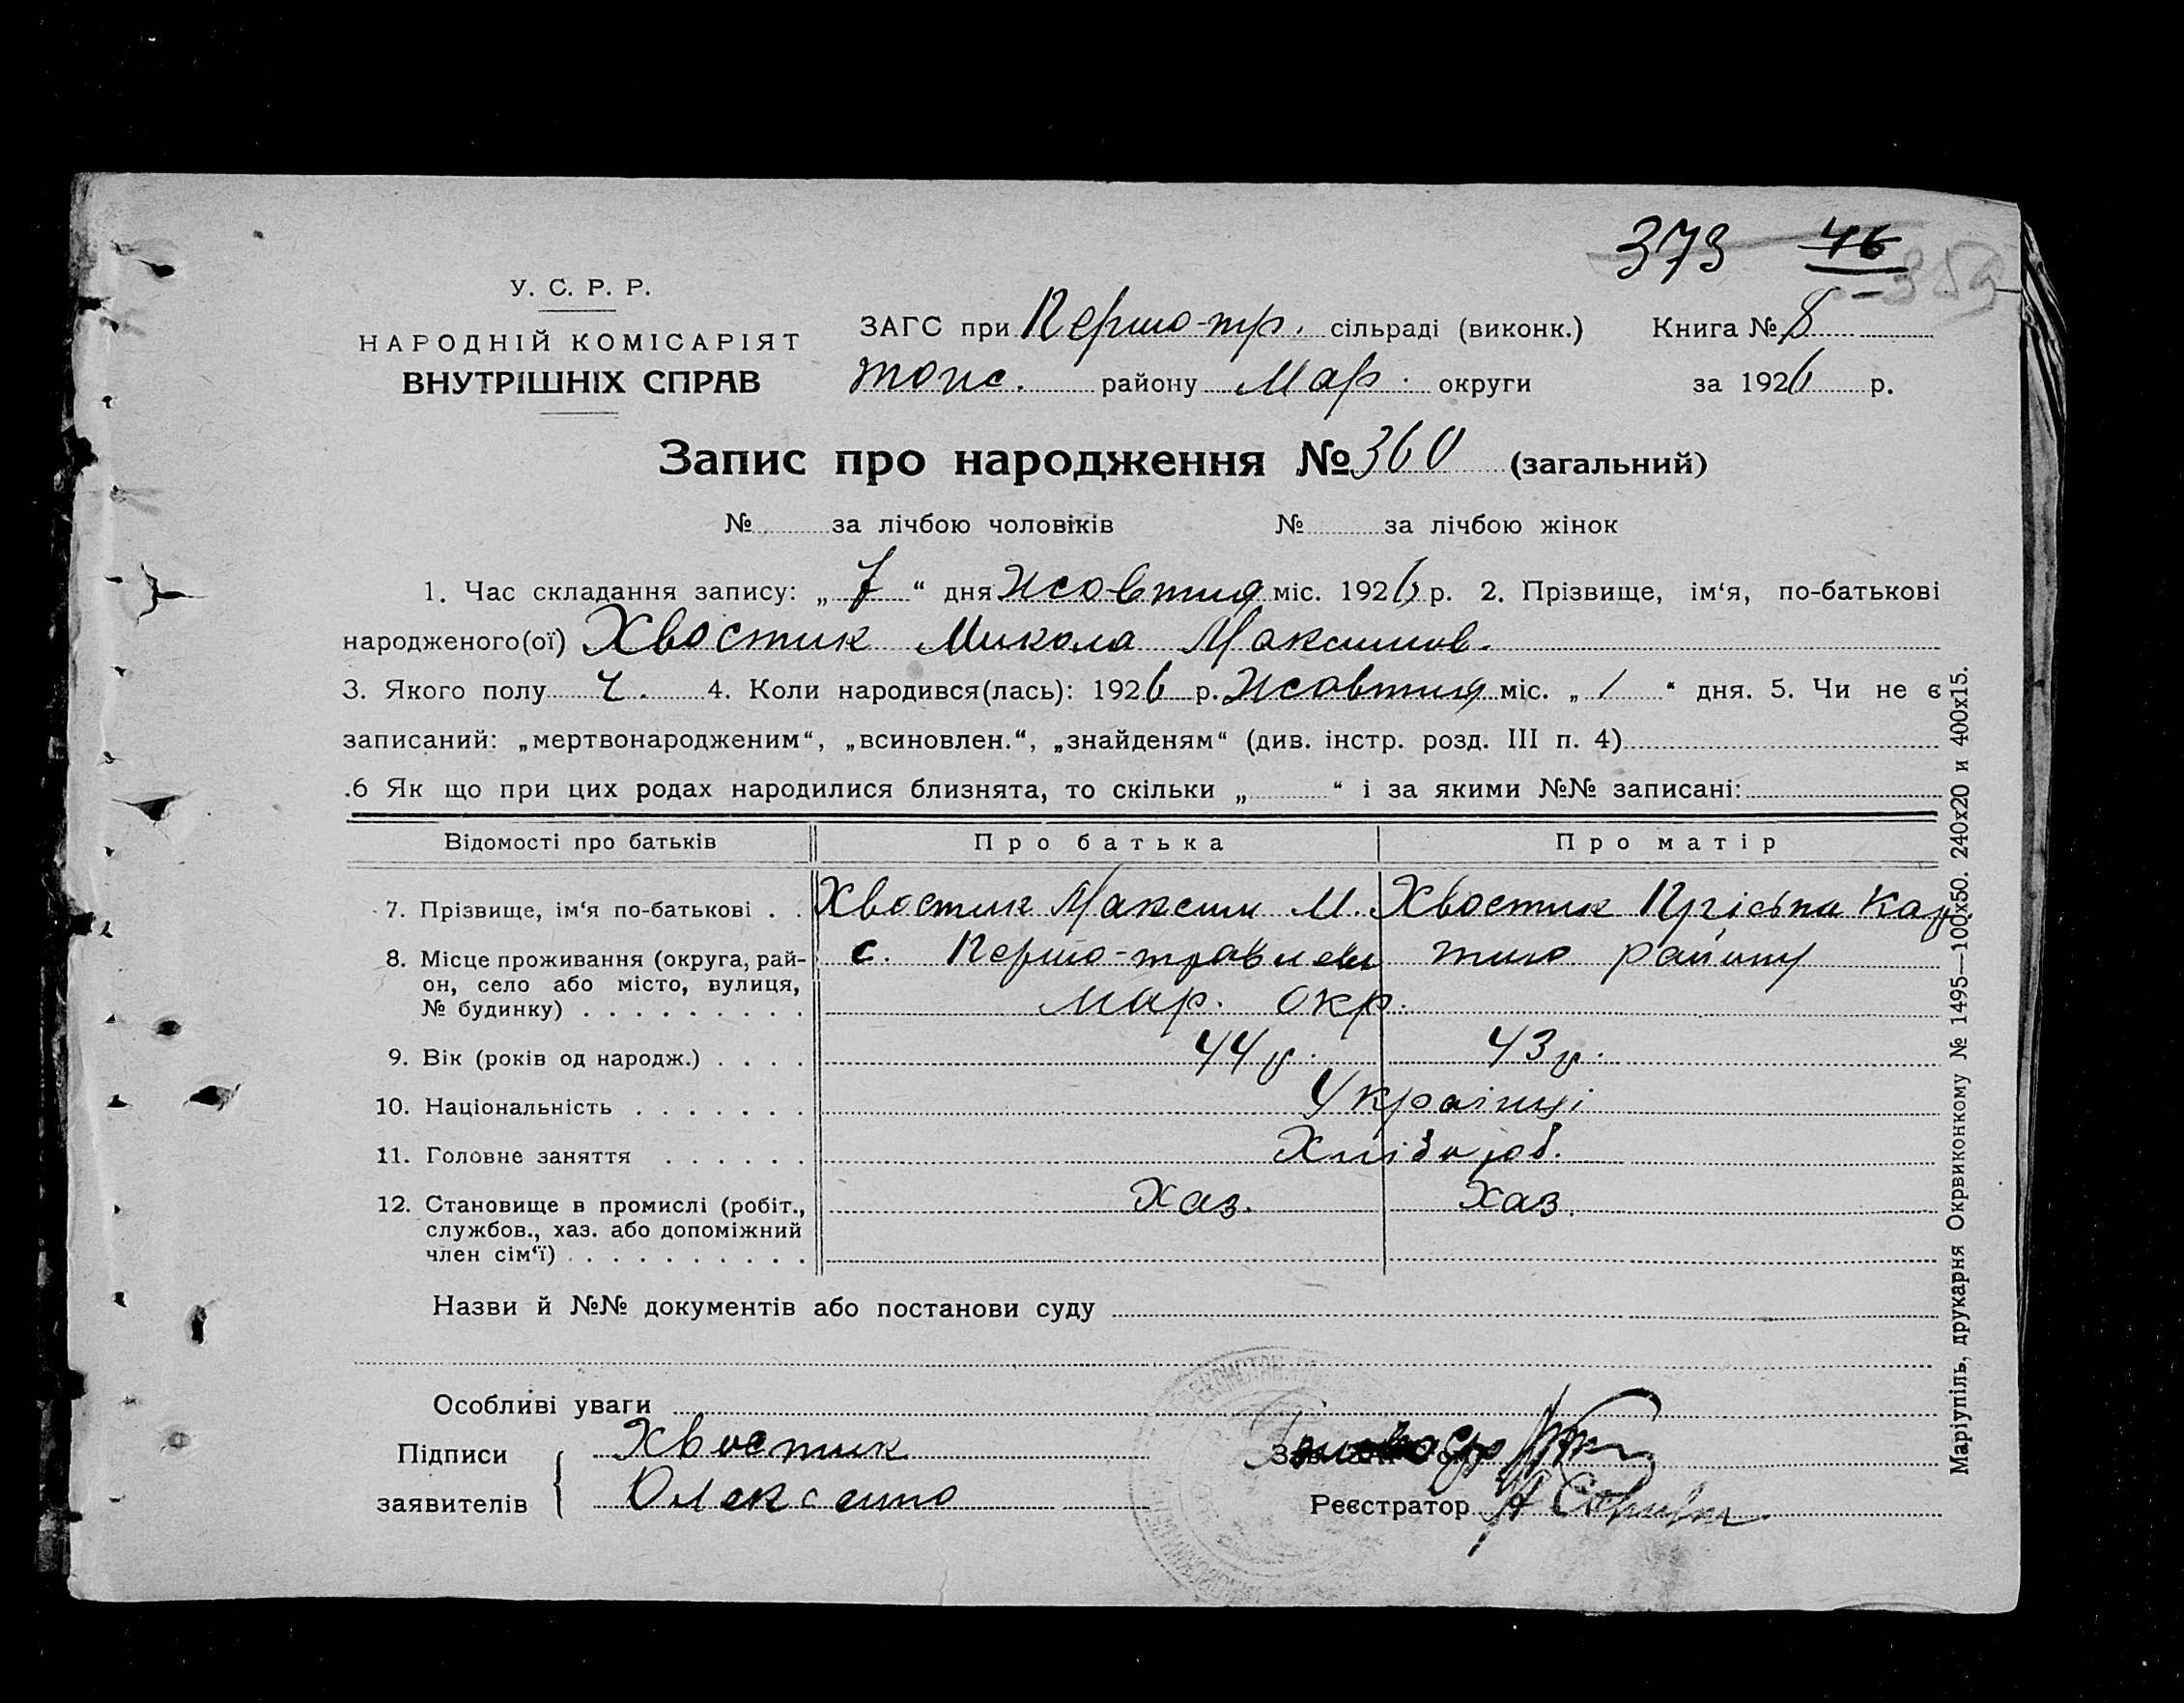 373 46
359
У. С. Р. Р.
НАРОДНІЙ КОМІСАРІЯТ
ВНУТРІШНІХ СПРАВ
ЗАГС при Першо-тр. сільраді (виконк.) Книга № 8
тоже. району Мар. округи за 1926 р.
Запис про народження № 360 (загальний)
№ за лічбою чоловіків № за лічбою жінок
1. Час складання запису: „ 7 “ дня жовтня міс. 1926 р. 2. Прізвище, ім‘я, по-батькові
народженого(ої) Хвостик Микола Максимов.
3. Якого полу ч. 4. Коли народився(лась): 1926 р. жовтня міс. „ 1 “ дня. 5. Чи не є
записаний: „мертвонародженим“, „всиновлен.“, „знайденям“ (див. інстр. розд. III п. 4)
.6 Як що при цих родах народилися близнята, то скільки „ “ і за якими №№ записані:
Відомості про батьків Про батька Про матір
7. Прізвище, ім‘я по-батькові . . Хвостик Максим М. Хвостик Пріська Кар
8. Місце проживання (округа, рай- с. Першо-травнев того району
он, село або місто, вулиця, Мар. окр.
№ будинку) . . . . . . . . .
9. Вік (років од народж.) . . . . 44 р. 43 р.
10. Національність . . . . . . . Українці
11. Головне заняття . . . . . . Хлібороб.
12. Становище в промислі (робіт., Хаз. Хаз.
службов., хаз. або допоміжний
член сім‘ї) . . . . . . . . . .
Назви й №№ документів або постанови суду
Особливі уваги
Підписи Хвостик
заявителів Олексанто
Реєстратор
Маріупіль, друкарня Окрвиконкому № 1495—100х50. 240х20 и 400х15.